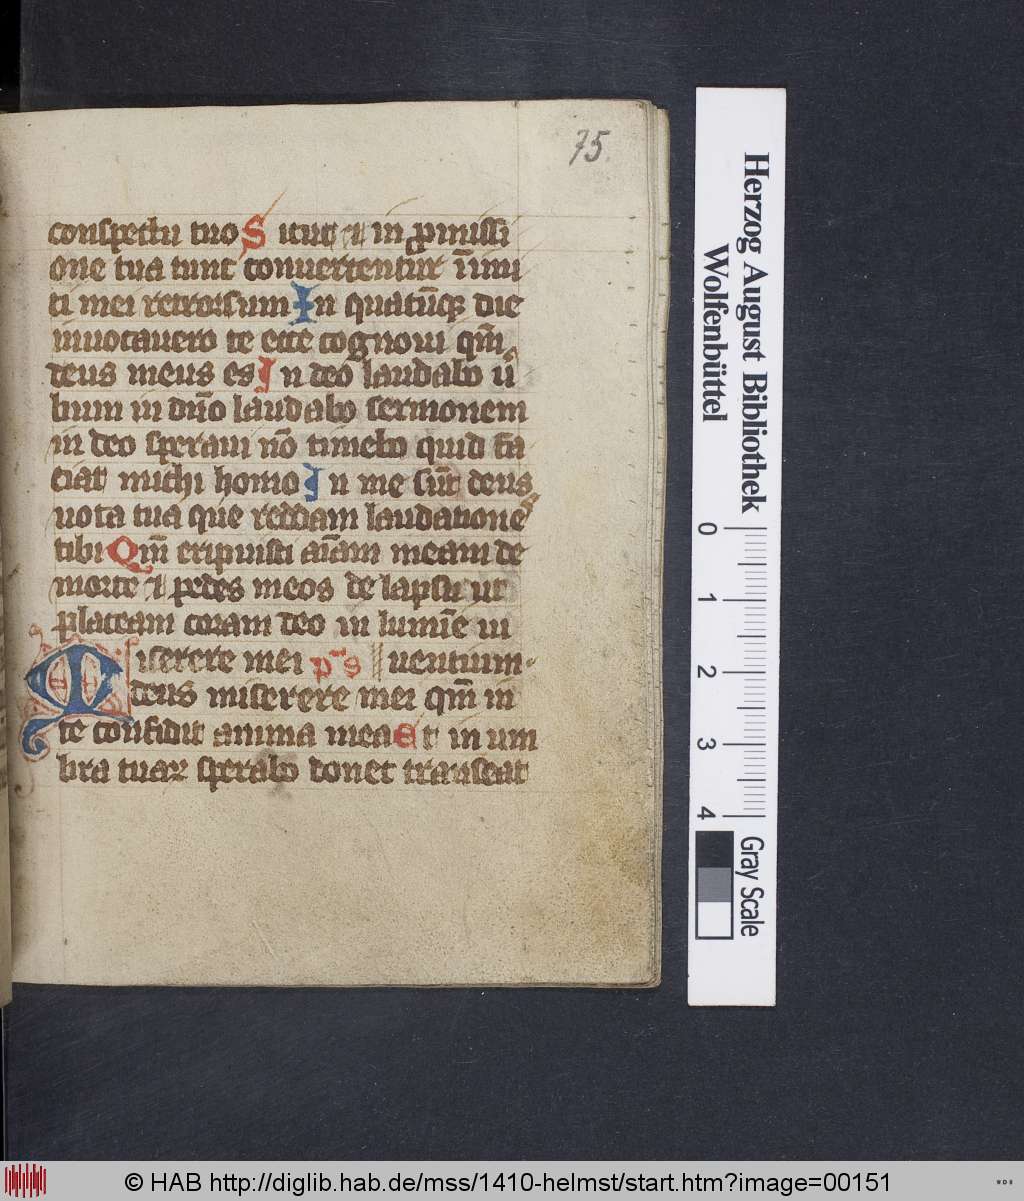 75.
conspectu tuo Sicut ⁊ in ꝓmissi
one tua tunc conuertentur īimi
ci mei retrorsum In quacūqꝫ die
inuocauero te ecce cognoui qm̄
deus meus es In deo laudabo ũ
bum in dn̄o laudabo sermonem
in deo speraui nō timebo quid fa
ciat michi homo In me sūt deus
uota tua que reddam laudatione
tibi Qm̄ eripuisti aīam meam de
morte ⁊ pedes meos de lapsu ut
placeam coram deo in lumīe ui
Miserere mei ps uentium
deus miserere mei qm̄ in
te confidit anima mea Et in um
bra tuaꝝ sperabo donec transeat
Herzog August Bibliothek
Wolfenbüttel
0 1 2 3 4
Gray Scale
© HAB http://diglib.hab.de/mss/1410-helmst/start.htm?image=00151